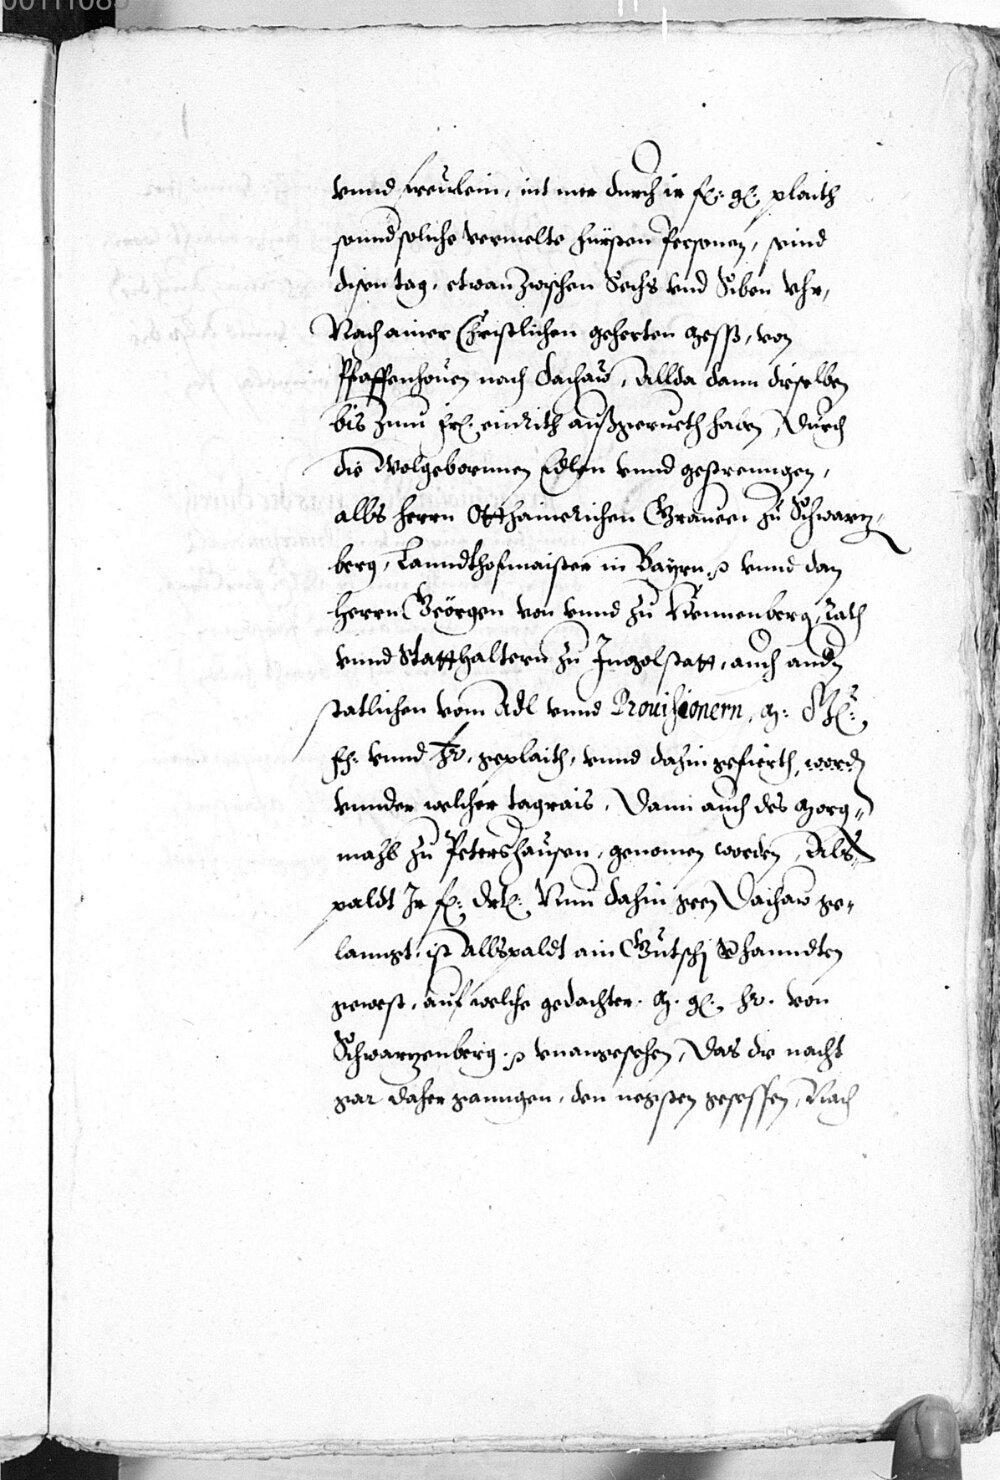 vnnd Freulein, nit mer durch ir f: g: plaith
sonnd soliche vermelte Fürsten Personen, seind
disen tag, etwan zwischen Sechs vnd Siben Vhr,
Nach ainer Christlichen geherten Mess, von
Pfaffenhouen nach Dachaw, Allda dann dieselben
bis zum einrith außgerueth haben, Durch
die Wolgebornnen Edlen vnnd gestrenngen,
alls herrn Ottheinrichen Grauen zu Schwartz-
berg, Lanndthofmaister in Bayrn vnnd dan
herrn Geörgen von vnnd zu Hennenberg, Rath
vnnd Statthaltern zu Ingolstatt, auch andn
statlichen vom Adl vnnd Prouisionern, G:
vnnd Hr. geplaith, vnnd dahin gefierth, wordn
vnnder welcher tagrais, Dann auch das Morg-
mahl zu Petershausen, genomen worden, Als
paldt Ir f: Nun dahin geen Dachaw ge-
langt, ist Allspaldt ain Gutschj Vorhanndten
gewest, auf welche gedachter. G. g. Hr. von
Schwarzenberg. vnangesehen, Das die nacht
gar daher ganngen, den negsten gesessen, Nach